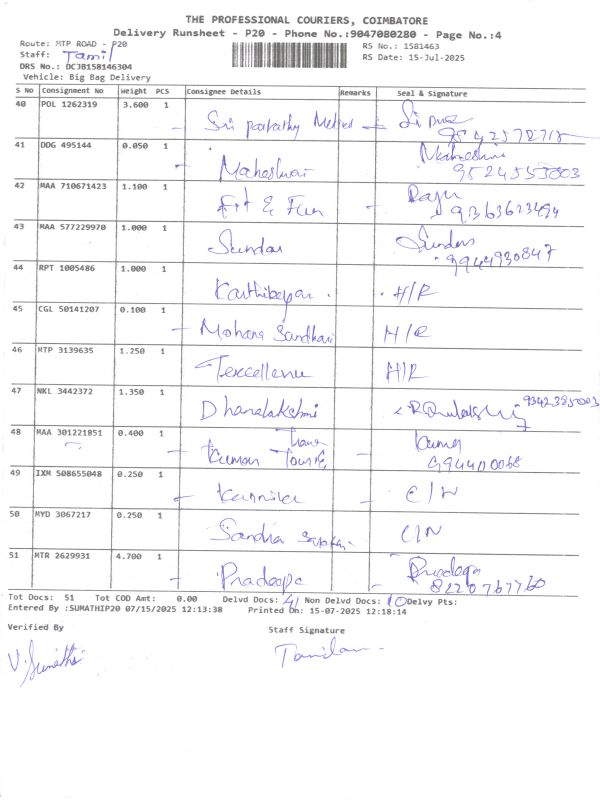 THE PROFESSIONAL COURIERS, COIMBATORE
Delivery Runsheet - P20 - Phone No.:9047080280 - Page No.:4
Route: MTP ROAD - P20
RS No.: 1581463
Staff: Tamil
RS Date: 15-Jul-2025
DRS No.: DCJB158146304
Vehicle: Big Bag Delivery
S No Consignment No Weight PCS Consignee Details Remarks Seal & Signature
40 POL 1262319 3.600 1 Sri
41 DDG 495144 0.050 1 Maheshwari Maheshwari
9524555003
42 MAA 710671423 1.100 1 Fit & Fun Raju
9363623494
43 MAA 577229970 1.000 1 Sundar Sundar
9944930847
44 RPT 1005486 1.000 1 Karthikeyan . H/R
45 CGL 50141207 0.100 1 Mohana H/R
46 MTP 3139635 1.250 1 Texcellence H/R
47 NKL 3442372 1.350 1 Dhanalakshmi
48 MAA 301221851 0.400 1 Kumar Kumar
49 IXM 508655048 0.250 1 Kannika C/N
50 MYD 3067217 0.250 1 Sandia C/N
51 MTR 2629931 4.700 1 Pradeepa Pradeepa
8220767760
Tot Docs: 51 Tot COD Amt: 0.00 Delvd Docs: 41 Non Delvd Docs: 10 Delvy Pts:
Entered By :SUMATHIP20 07/15/2025 12:13:38 Printed On: 15-07-2025 12:18:14
Verified By Staff Signature
V. Sumathi